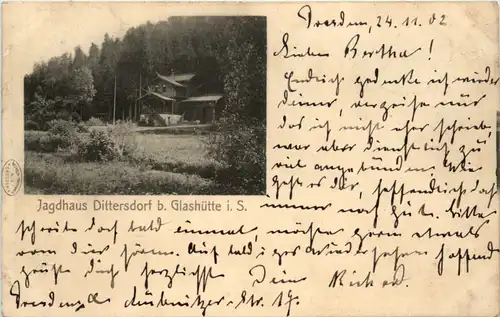 Dresden, 24.11.02
Lieben Bertha!
Endlich gedenke ich wieder
deiner, verzeihe nur
das ich nicht eher schrieb
war aber dienstlich zu
viel angebunden. Wie
geht es dir, hoffendlich doch
immer noch gut. Bitte
schreibe doch bald einmal, möchte gern etwas
von dir hören. Auf baldiges Wiedersehen hoffend
grüßt dich herzlichst Dein Richard.
Dresden Lübnitzer-Str. 17.
Jagdhaus Dittersdorf b. Glashütte i. S.